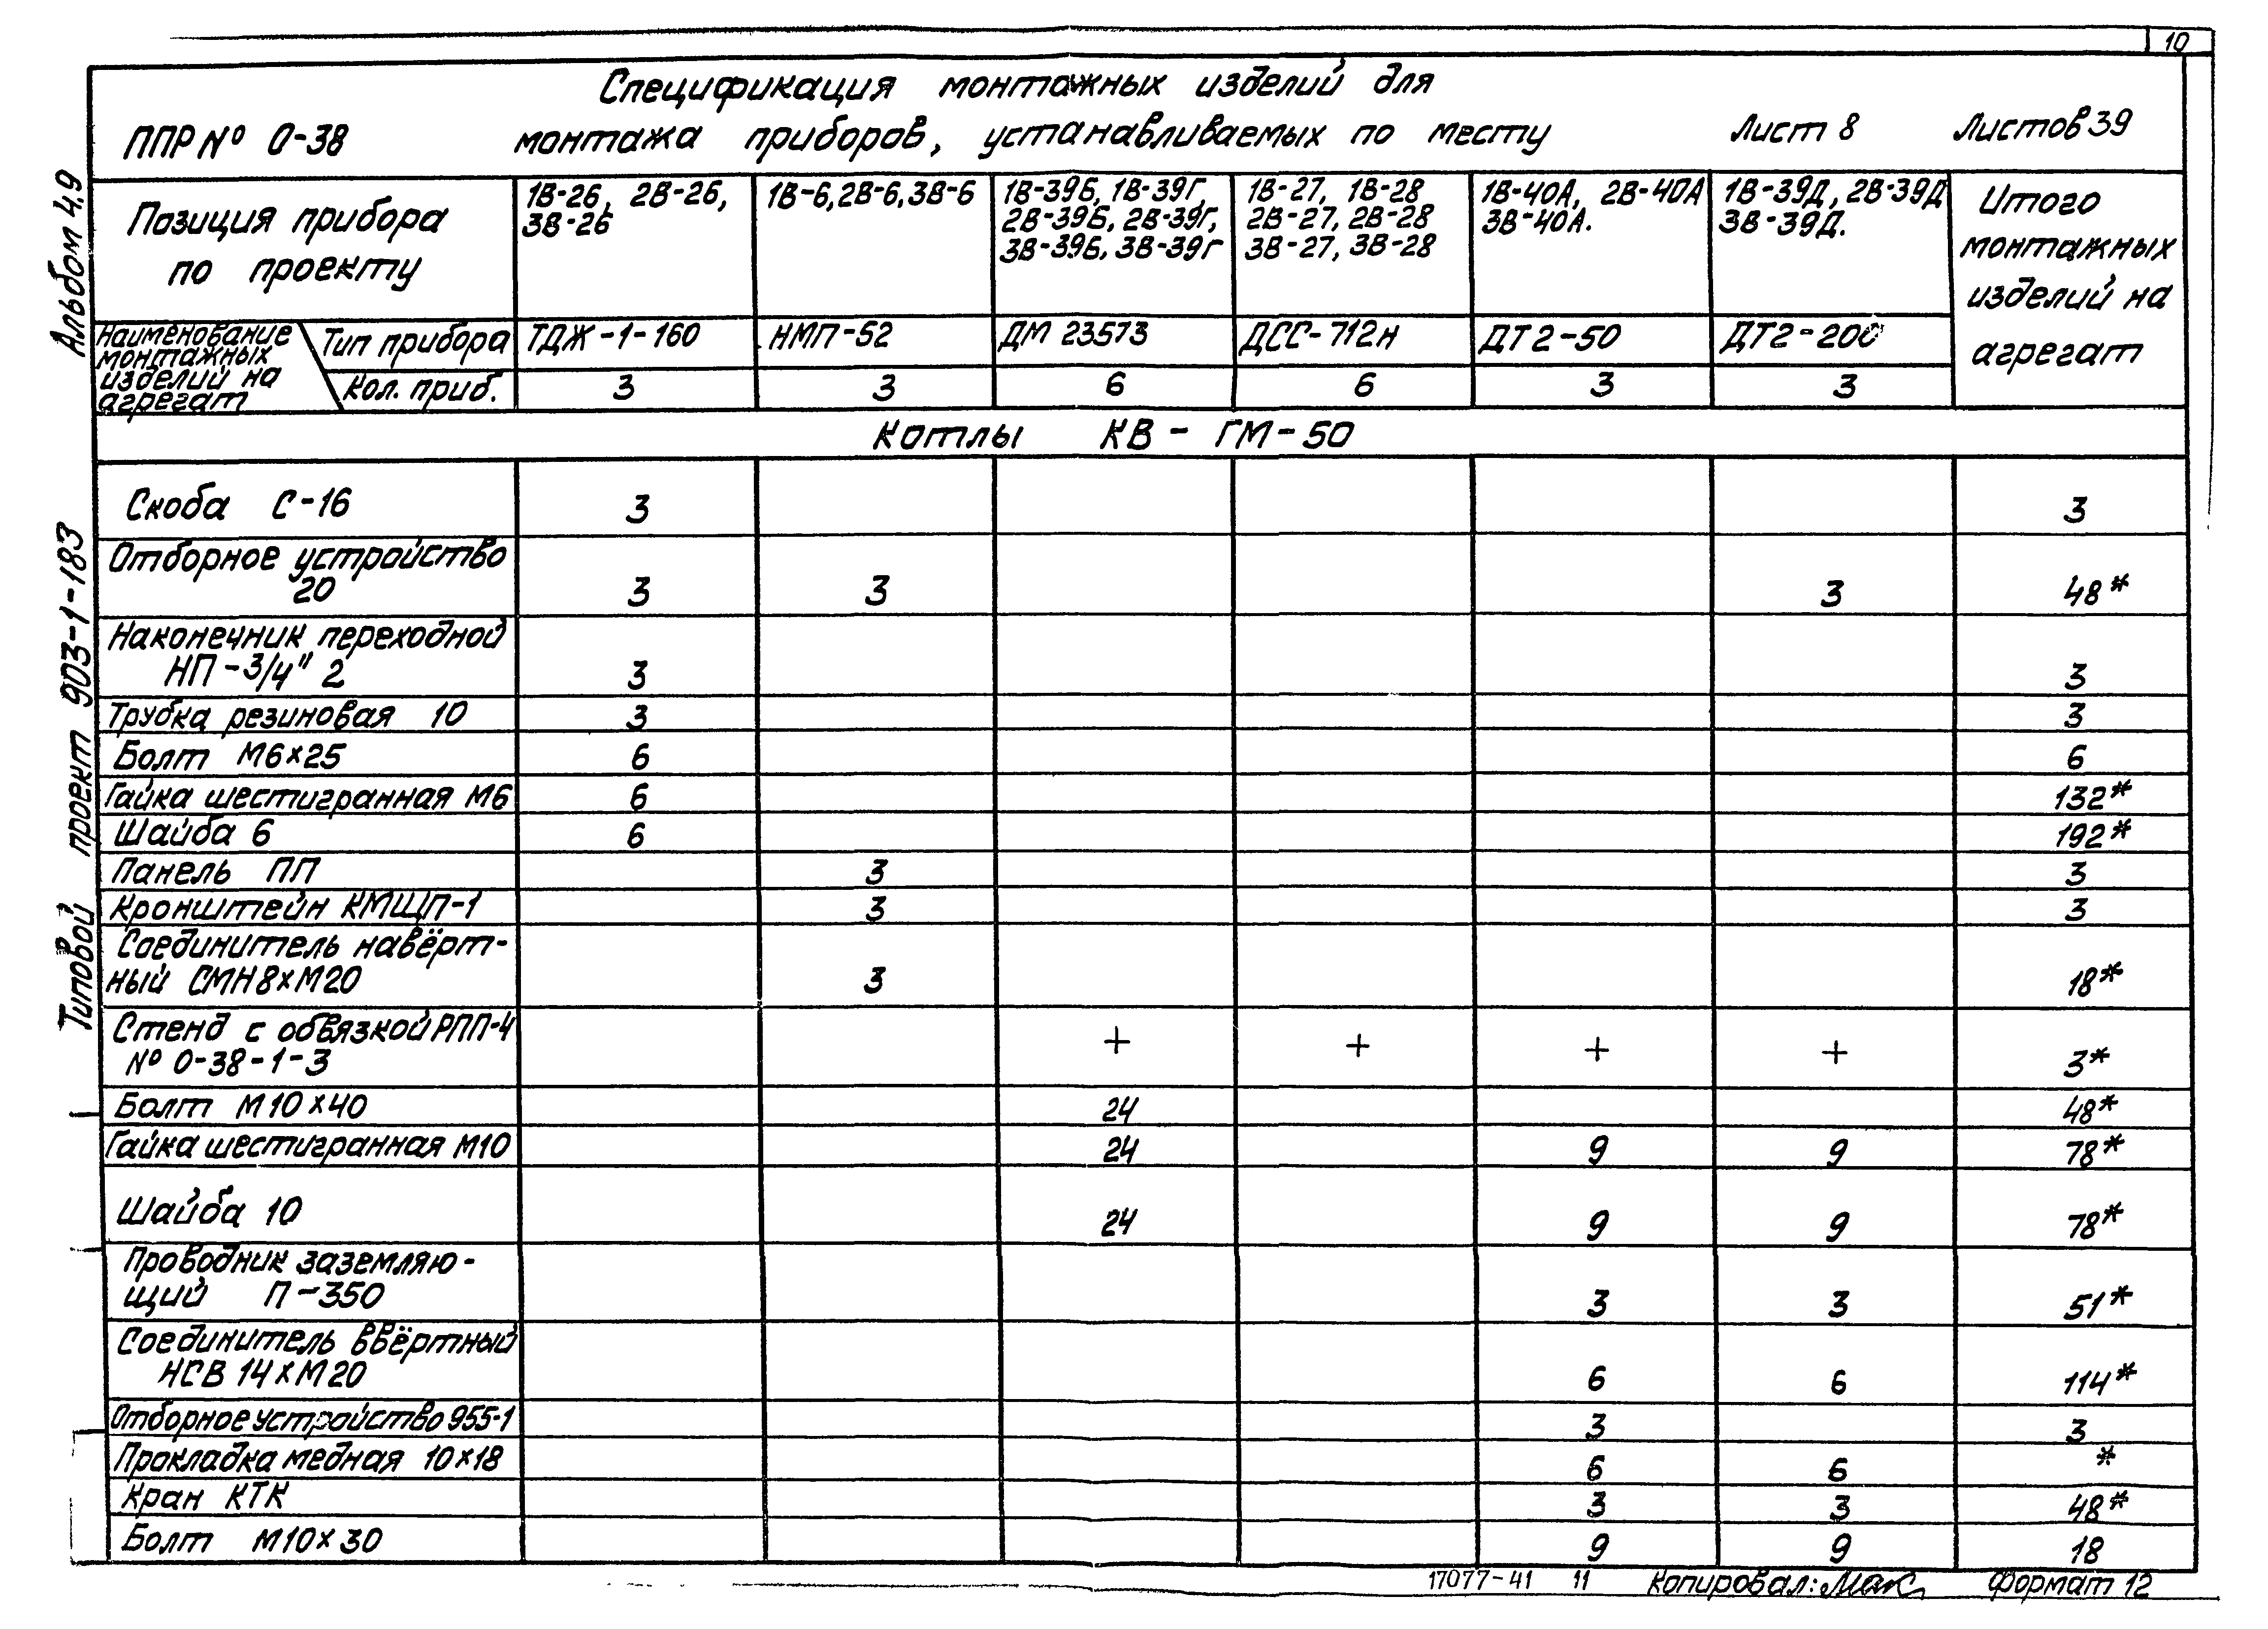 10
Спецификация монтажных изделий для
ППР № 0-38 монтажа приборов, устанавливаемых по месту Лист 8 Листов 39
Альбом 4.9
Типовой проект 903-1-183
Позиция прибора
по проекту
1В-26, 2В-26,
3В-26
1В-6, 2В-6, 3В-6
1В-39Б, 1В-39Г,
2В-39Б, 2В-39Г,
3В-39Б, 3В-39Г
1В-27, 1В-28
2В-27, 2В-28
3В-27, 3В-28
1В-40А, 2В-40А
3В-40А.
1В-39Д, 2В-39Д
3В-39Д.
Итого
монтажных
изделий на
агрегат
Наименование
монтажных
изделий на
агрегат
Тип прибора ТДЖ-1-160 НМП-52 ДМ 23573 ДСС-712н ДТ2-50 ДТ2-200
Кол. приб. 3 3 6 6 3 3
Котлы КВ-ГМ-50
Скоба С-16 3 3
Отборное устройство
20 3 3 3 48*
Наконечник переходной
НП-3/4" 2 3 3
Трубка резиновая 10 3 3
Болт М6х25 6 6
Гайка шестигранная М6 6 132*
Шайба 6 6 192*
Панель ПП 3 3
Кронштейн КМЩП-1 3 3
Соединитель навёрт-
ный СМН8хМ20 3 18*
Стенд с обвязкой РПП-4
№ 0-38-1-3 + + + + 3*
Болт М10х40 24 48*
Гайка шестигранная М10 24 9 9 78*
Шайба 10 24 9 9 78*
Проводник заземляю-
щий П-350 3 3 51*
Соединитель ввёртный
НСВ 14хМ20 6 6 114*
Отборное устройство 955-1 3 3
Прокладка медная 10х18 6 6 *
Кран КТК 3 3 48*
Болт М10х30 9 9 18
17077-41 11 Копировал: Мак Формат 12